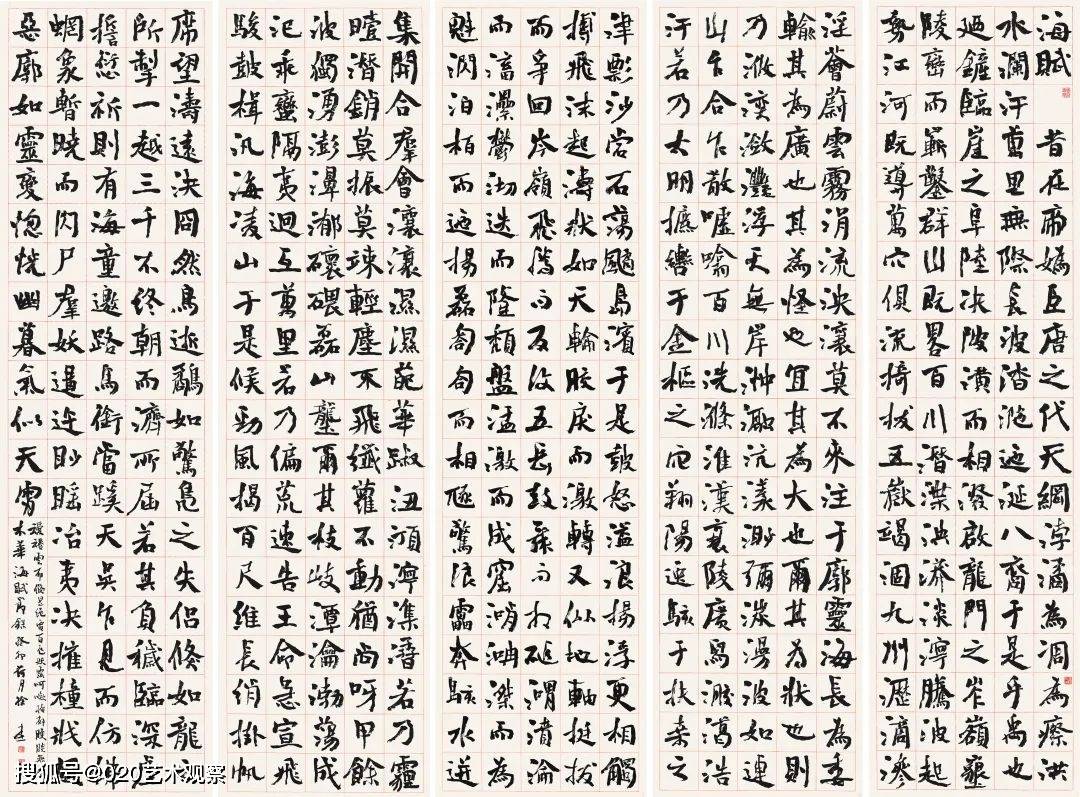 海賦 昔在帝媯巨唐之代天綱浡潏為凋為瘵洪
水瀾汗萬里無際長波涾㴞迤涎八裔于是乎禹也
廼鏟臨崖之阜陸決陂潢而相浚啟龍門之岝嶺墾
陵巒而嶄鑿群山既畧百川潛渫泱漭淡濘騰波赴
勢江河既導萬穴俱流掎拔五嶽竭涸九州瀝滴滲
淫薈蔚雲霧涓流泱瀼莫不來注于廓靈海長為委
輸其為廣也其為怪也宜其為大也爾其為狀也則
乃浟湙瀲灩浮天無岸沖瀜沆瀁渺瀰湠漫波如連
山乍合乍散噓噏百川洗滌淮漢襄陵廣舄㵧浩
汗若乃大明摭轡于金樞之穴翔陽逸駭于扶桑之
津彯沙礐石蕩䬍島濱于是鼓怒溢浪揚浮更相觸
搏飛沫起濤狀如天輪膠戾而激轉又似地軸挺拔
而爭回岑嶺飛騰而反復五嶽鼓舞而相磓渭濆淪
而滀漯鬱沏迭而隆頹盤盓激而成窟㴖㴐滐而為
魁㴸泊柏而迆揚磊匒匌而相豗驚浪雷奔駭水迸
集開合群會瀼瀼濕濕葩華踧沑澒濘潗㴔若乃霾
曀潛銷莫振莫竦輕塵不飛纖蘿不動猶尚呀呷餘
波獨湧澎濞灪礭磈磊山壟爾其枝岐潭瀹渤蕩成
汜乖蠻隔夷迴互萬里若乃偏荒速告王命急宣飛
駿鼓楫汎海凌山于是候勁風揭百尺維長綃掛帆
席望濤遠決冏然鳥逝鷸如驚鳧之失侶倏如龍
所掣一越三千不終朝而濟所屆若其負穢臨深
誓愆祈則有海童邀路馬銜當蹊天吳乍見而仿
蝄象暫曉而閃尸群妖遘迕眇䁘冶夷決摧橦戕
惡廓如靈變惚恍幽暮氣似天霄
木華海賦節錄癸卯荷月
搜狐号@020艺术观察